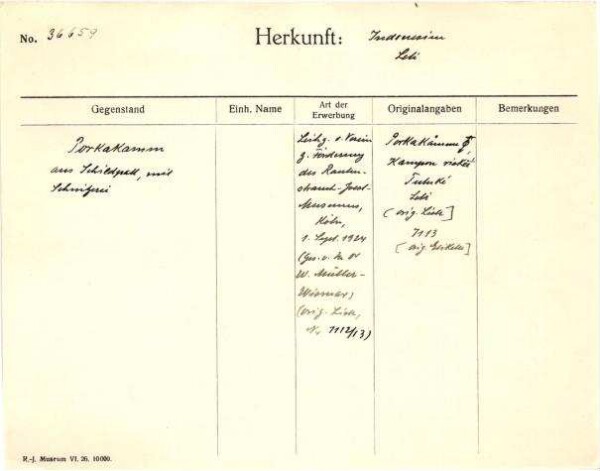 No. 36659
Herkunft: Indonesien
Leti
Gegenstand
Einh. Name
Art der Erwerbung
Originalangaben
Bemerkungen
Porkakamm
aus Schildpatt, mit
Schnitzerei
Leihg. v. Verein
z. Förderung
des Rauten-
strauch-Joest-
Museums,
Köln,
1. Sept. 1924
(Ges. v.
W. Müller-
Wismar)
(orig. Liste,
Nr. 7112/13)
Porkakämme
Kampon
Tutuké
Leti
(orig. Liste]
7113
(orig. Etikette]
R.-J. Museum VI. 26. 10000.